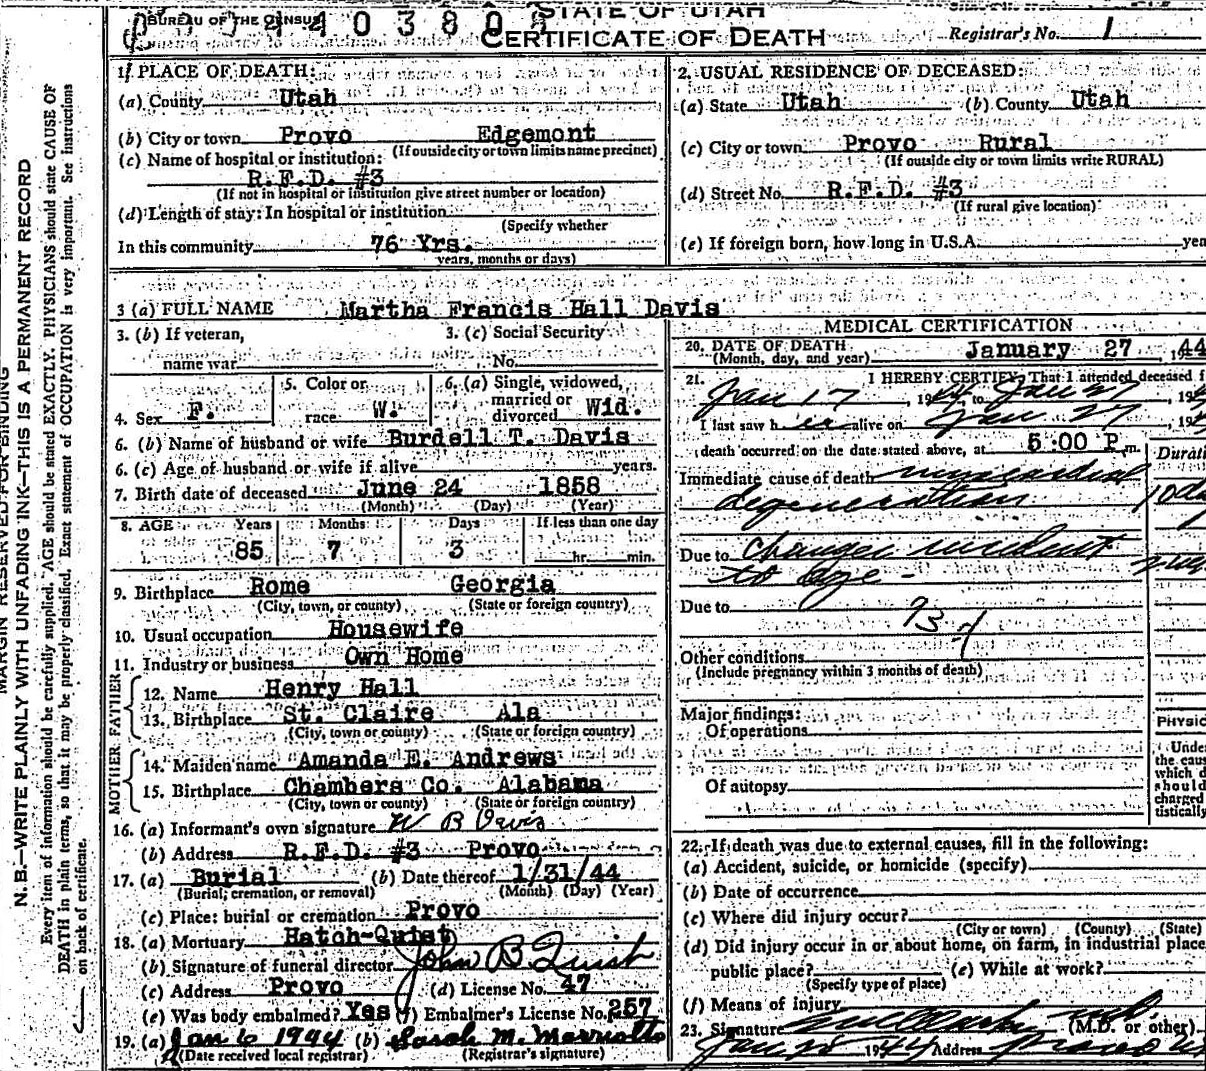 BUREAU OF THE CENSUS
STATE OF UTAH
CERTIFICATE OF DEATH
Registrar's No. 1
MARGIN RESERVED FOR BINDING
N. B.—WRITE PLAINLY WITH UNFADING INK—THIS IS A PERMANENT RECORD
Every item of information should be carefully supplied. AGE should be stated EXACTLY. PHYSICIANS should state CAUSE OF
DEATH in plain terms, so that it may be properly classified. Exact statement of OCCUPATION is very important. See Instructions
on back of certificate.
1. PLACE OF DEATH:
(a) County Utah
(b) City or town Provo Edgemont
(If outside city or town limits name precinct)
(c) Name of hospital or institution:
R.F.D. #3
(If not in hospital or institution give street number or location)
(d) Length of stay: In hospital or institution
(Specify whether
In this community 76 Yrs.
years, months or days)
2. USUAL RESIDENCE OF DECEASED:
(a) State Utah (b) County Utah
(c) City or town Provo Rural
(If outside city or town limits write RURAL)
(d) Street No. R.F.D. #3
(If rural give location)
(e) If foreign born, how long in U.S.A. yea
3 (a) FULL NAME Martha Francis Hall Davis
3. (b) If veteran,
name war
3. (c) Social Security
No.
4. Sex F.
5. Color or
race W.
6. (a) Single, widowed,
married or
divorced Wid.
6. (b) Name of husband or wife Burdell T. Davis
6. (c) Age of husband or wife if alive years.
7. Birth date of deceased June 24 1858
(Month) (Day) (Year)
8. AGE Years Months Days If less than one day
85 7 3 hr. min.
9. Birthplace Rome Georgia
(City, town, or county) (State or foreign country)
10. Usual occupation Housewife
11. Industry or business Own Home
FATHER
12. Name Henry Hall
13. Birthplace St. Claire Ala
(City, town or county) (State or foreign country)
MOTHER
14. Maiden name Amanda E. Andrews
15. Birthplace Chambers Co. Alabama
(City, town or county) (State or foreign country)
16. (a) Informant's own signature W B Davis
(b) Address R.F.D. #3 Provo
17. (a) Burial (b) Date thereof 1/31/44
(Burial, cremation, or removal) (Month) (Day) (Year)
(c) Place: burial or cremation Provo
18. (a) Mortuary Hatch-Quist
(b) Signature of funeral director John B Quist
(c) Address Provo (d) License No. 47
(e) Was body embalmed? Yes (f) Embalmer's License No. 257
19. (a) Jan 6 1944 (b) Sarah M. Marriott
(Date received local registrar) (Registrar's signature)
MEDICAL CERTIFICATION
20. DATE OF DEATH
(Month, day, and year) January 27, 1944
21. I HEREBY CERTIFY, That I attended deceased f
Jan 17, 1944, to Jan 27, 19
I last saw her alive on Jan 27, 19
death occurred on the date stated above, at 5:00 P.m.
Durati
Immediate cause of death myocardial
degeneration 10 da
Due to Changes incident
to age -
Due to
93
Other conditions
(Include pregnancy within 3 months of death)
Major findings:
Of operations
Of autopsy
PHYSIC
Under
the cau
which d
should
charged
tistically
22. If death was due to external causes, fill in the following:
(a) Accident, suicide, or homicide (specify)
(b) Date of occurrence
(c) Where did injury occur?
(City or town) (County) (State)
(d) Did injury occur in or about home, on farm, in industrial place
public place? (e) While at work?
(Specify type of place)
(f) Means of injury
23. Signature (M.D. or other)
1944 Address Provo